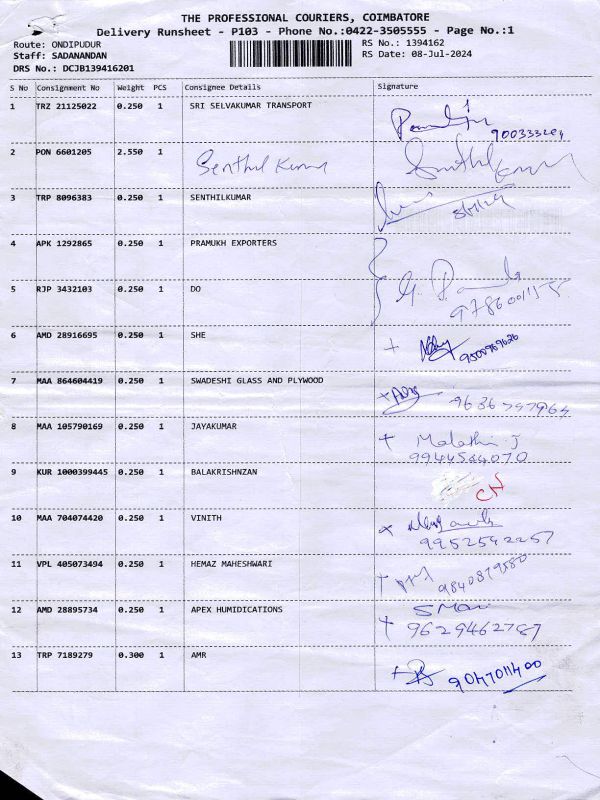 THE PROFESSIONAL COURIERS, COIMBATORE
Delivery Runsheet - P103 - Phone No.:0422-3505555 - Page No.:1
Route: ONDIPUDUR RS No.: 1394162
Staff: SADANANDAN RS Date: 08-Jul-2024
DRS No.: DCJB139416201
S No Consignment No Weight PCS Consignee Details Signature
1 TRZ 21125022 0.250 1 SRI SELVAKUMAR TRANSPORT
2 PON 6601205 2.550 1 Senthil Kumar Senthil Kumar
3 TRP 8096383 0.250 1 SENTHILKUMAR
4 APK 1292865 0.250 1 PRAMUKH EXPORTERS
5 RJP 3432103 0.250 1 DO
6 AMD 28916695 0.250 1 SHE
7 MAA 864604419 0.250 1 SWADESHI GLASS AND PLYWOOD
8 MAA 105790169 0.250 1 JAYAKUMAR Malathi. J
9944544070
9 KUR 1000399445 0.250 1 BALAKRISHNZAN CN
10 MAA 704074420 0.250 1 VINITH
9952542257
11 VPL 405073494 0.250 1 HEMAZ MAHESHWARI 9840879580
12 AMD 28895734 0.250 1 APEX HUMIDICATIONS
9629462787
13 TRP 7189279 0.300 1 AMR 9047011400